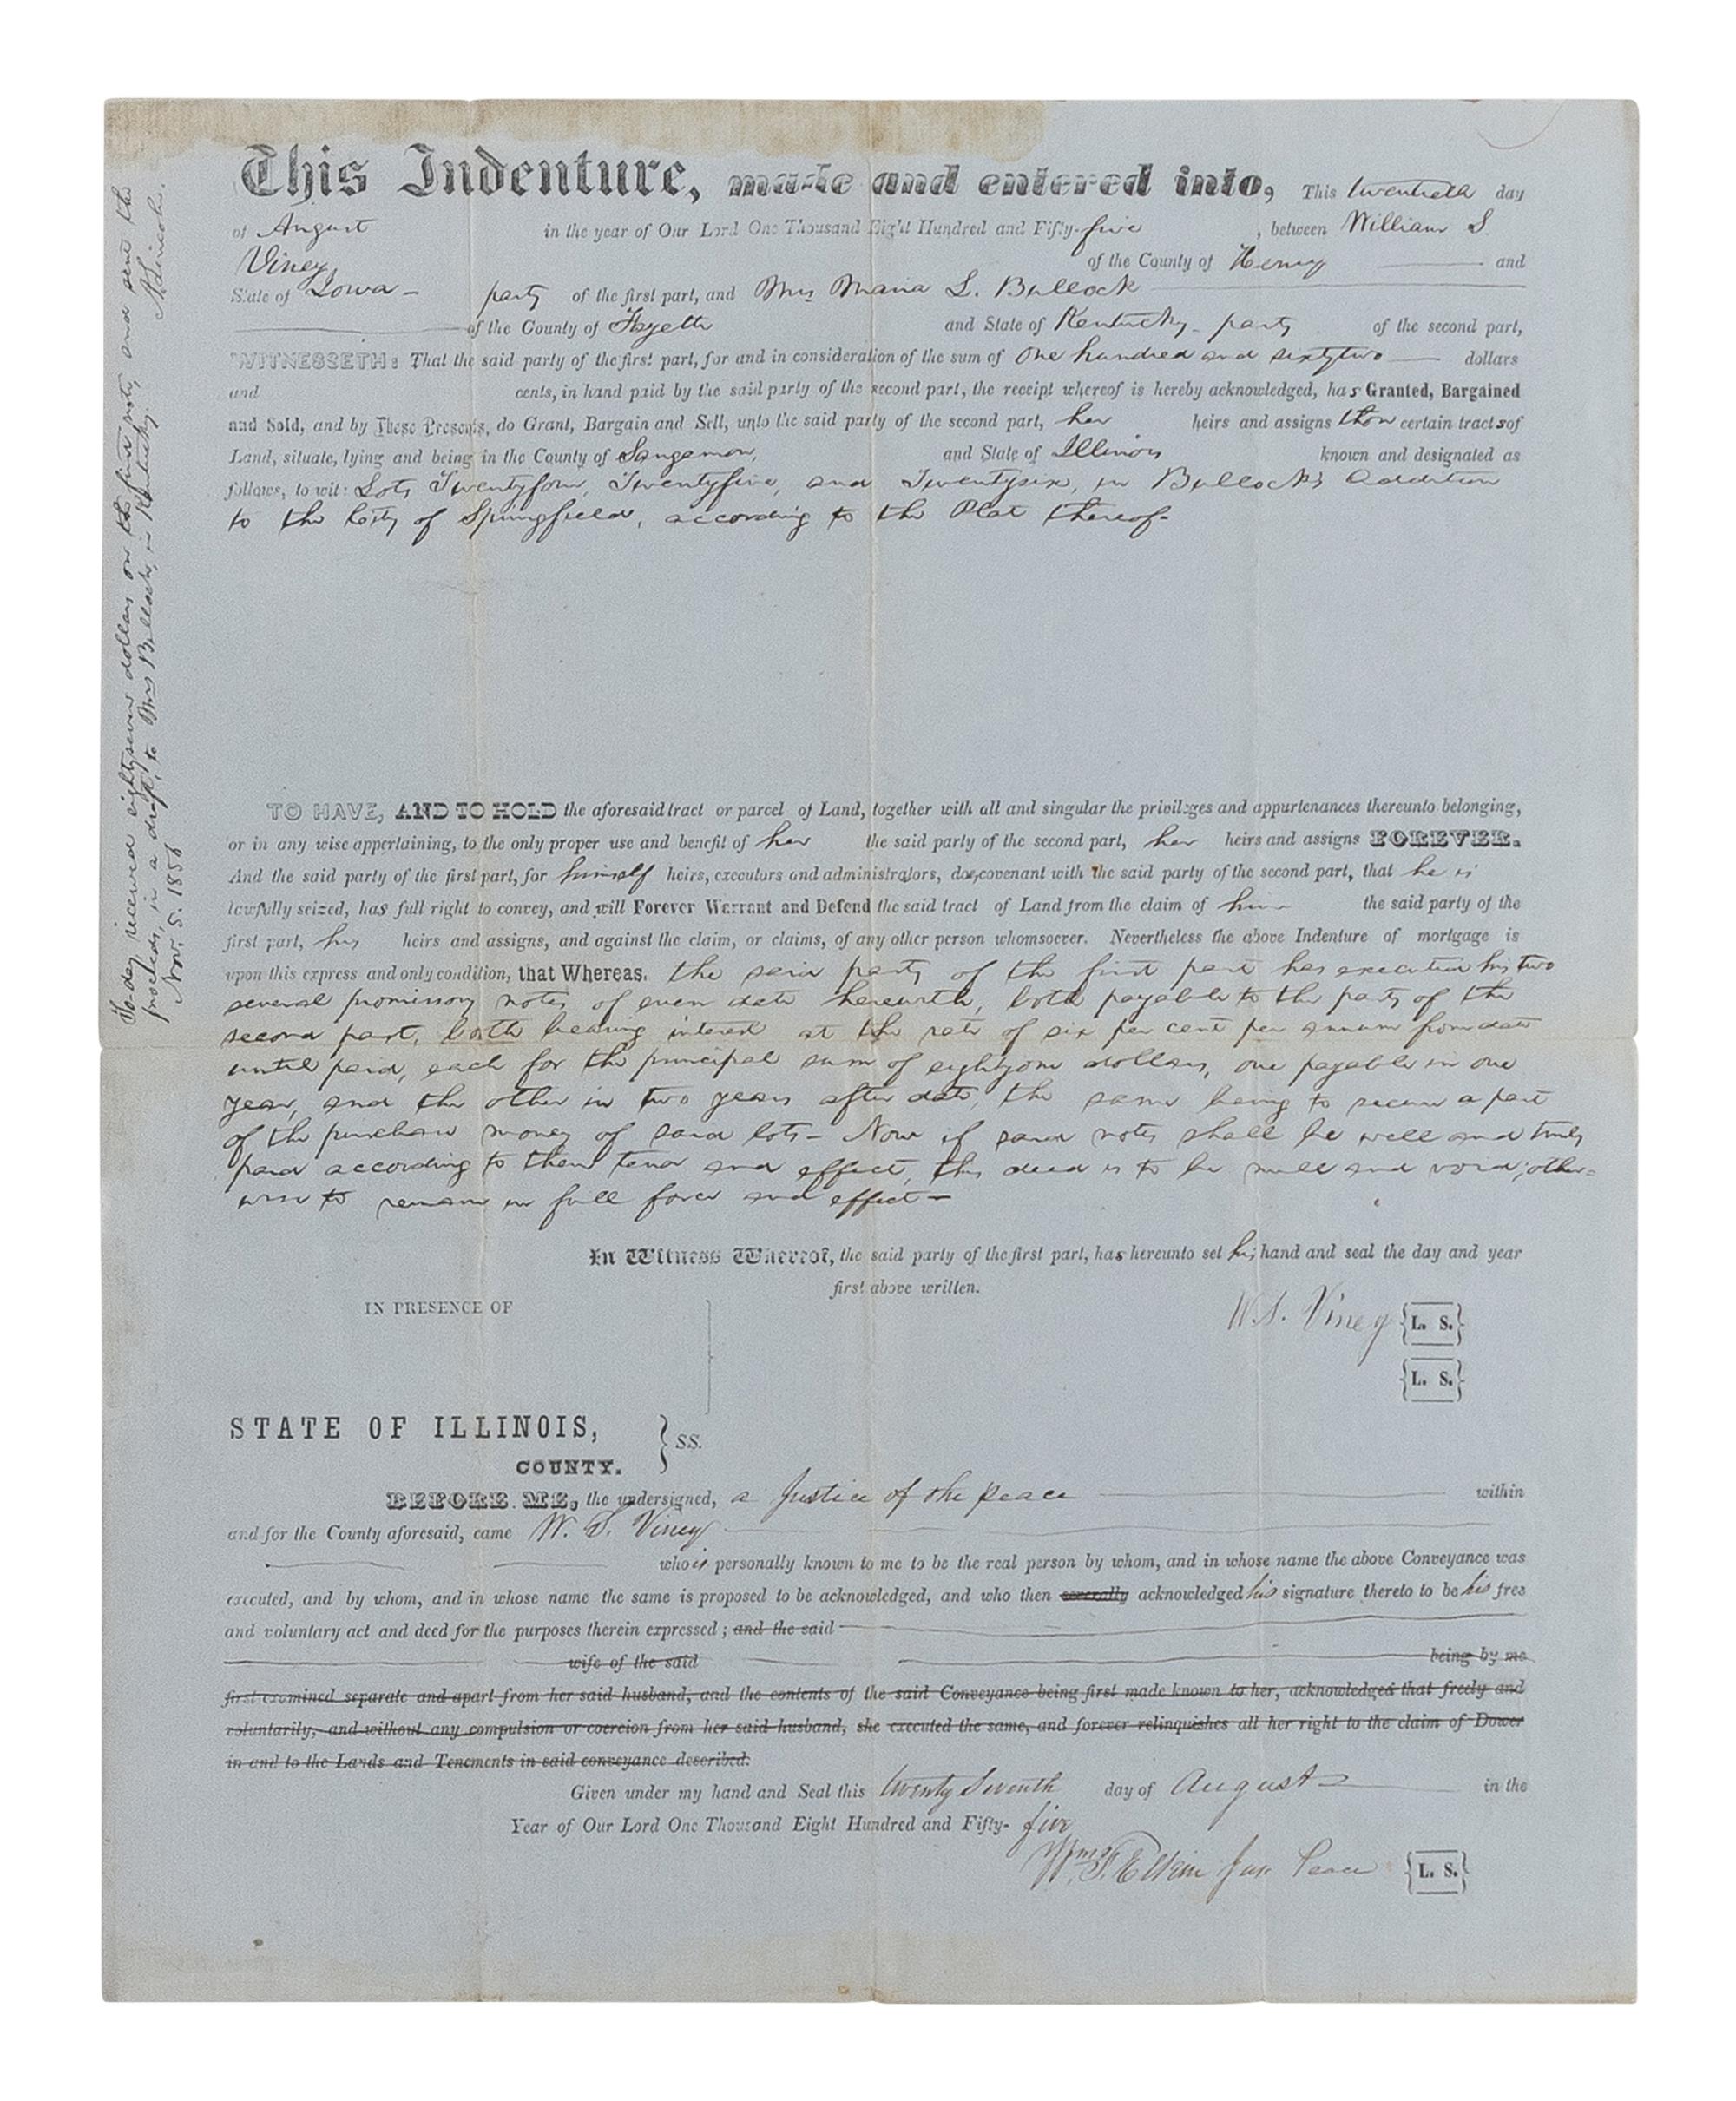 This Indenture, made and entered into, This twentieth day
of August in the year of Our Lord One Thousand Eight Hundred and Fifty-five, between William S.
Viney, of the County of Henry and
State of Iowa - party of the first part, and Mrs Maria L. Bullock
of the County of Fayette and State of Kentucky - party of the second part,
WITNESSETH: That the said party of the first part, for and in consideration of the sum of One hundred and sixtytwo dollars
and cents, in hand paid by the said party of the second part, the receipt whereof is hereby acknowledged, has Granted, Bargained
and Sold, and by These Presents, do Grant, Bargain and Sell, unto the said party of the second part, her heirs and assigns those certain tracts of
Land, situate, lying and being in the County of Sangamon, and State of Illinois known and designated as
follows, to wit: Lots Twentyfour, Twentyfive, and Twentysix, in Bullock's Addition
to the City of Springfield, according to the Plat thereof-
TO HAVE, AND TO HOLD the aforesaid tract or parcel of Land, together with all and singular the privileges and appurtenances thereunto belonging,
or in any wise appertaining, to the only proper use and benefit of her the said party of the second part, her heirs and assigns FOREVER.
And the said party of the first part, for himself heirs, executors and administrators, does, covenant with the said party of the second part, that he is
lawfully seized, has full right to convey, and will Forever Warrant and Defend the said tract of Land from the claim of him the said party of the
first part, his heirs and assigns, and against the claim, or claims, of any other person whomsoever. Nevertheless the above Indenture of mortgage is
upon this express and only condition, that Whereas. the said party of the first part has executed his two
several promissory notes of even date herewith, both payable to the party of the
second part, both bearing interest at the rate of six per cent per annum from date
until paid, each for the principal sum of eightyone dollars, one payable in one
year, and the other in two years after date, the same being to secure a part
of the purchase money of said lots - Now if said notes shall be well and truly
paid according to their tenor and effect, this deed is to be null and void; other=
wise to remain in full force and effect -
In Witness Whereof, the said party of the first part, has hereunto set his hand and seal the day and year
first above written.
IN PRESENCE OF
W. S. Viney {L. S.}
{L. S.}
STATE OF ILLINOIS,
COUNTY. } SS.
BEFORE ME, the undersigned, a Justice of the peace within
and for the County aforesaid, came W. S. Viney
who is personally known to me to be the real person by whom, and in whose name the above Conveyance was
executed, and by whom, and in whose name the same is proposed to be acknowledged, and who then severally acknowledged his signature thereto to be his free
and voluntary act and deed for the purposes therein expressed; and the said
wife of the said being by me
first examined separate and apart from her said husband, and the contents of the said Conveyance being first made known to her, acknowledged that freely and
voluntarily, and without any compulsion or coercion from her said husband, she executed the same, and forever relinquishes all her right to the claim of Dower
in and to the Lands and Tenements in said conveyance described.
Given under my hand and Seal this twenty Seventh day of August in the
Year of Our Lord One Thousand Eight Hundred and Fifty- five
Wm. F. Elkin Jus. Peace {L. S.}
To-day received eightyseven dollars on the first note, and sent the
proceeds, in a draft, to Mrs Bullock, in Kentucky.
Nov. 5. 1856 A. Lincoln.